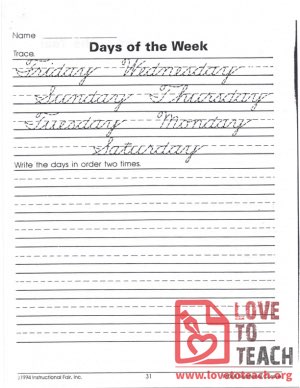 Name
Days of the Week
Trace.
Friday Wednesday
Sunday Thursday
Tuesday Monday
Saturday
Write the days in order two times.
LOVE
TO
TEACH
www.lovetoteach.org
©1994 Instructional Fair, Inc.
31